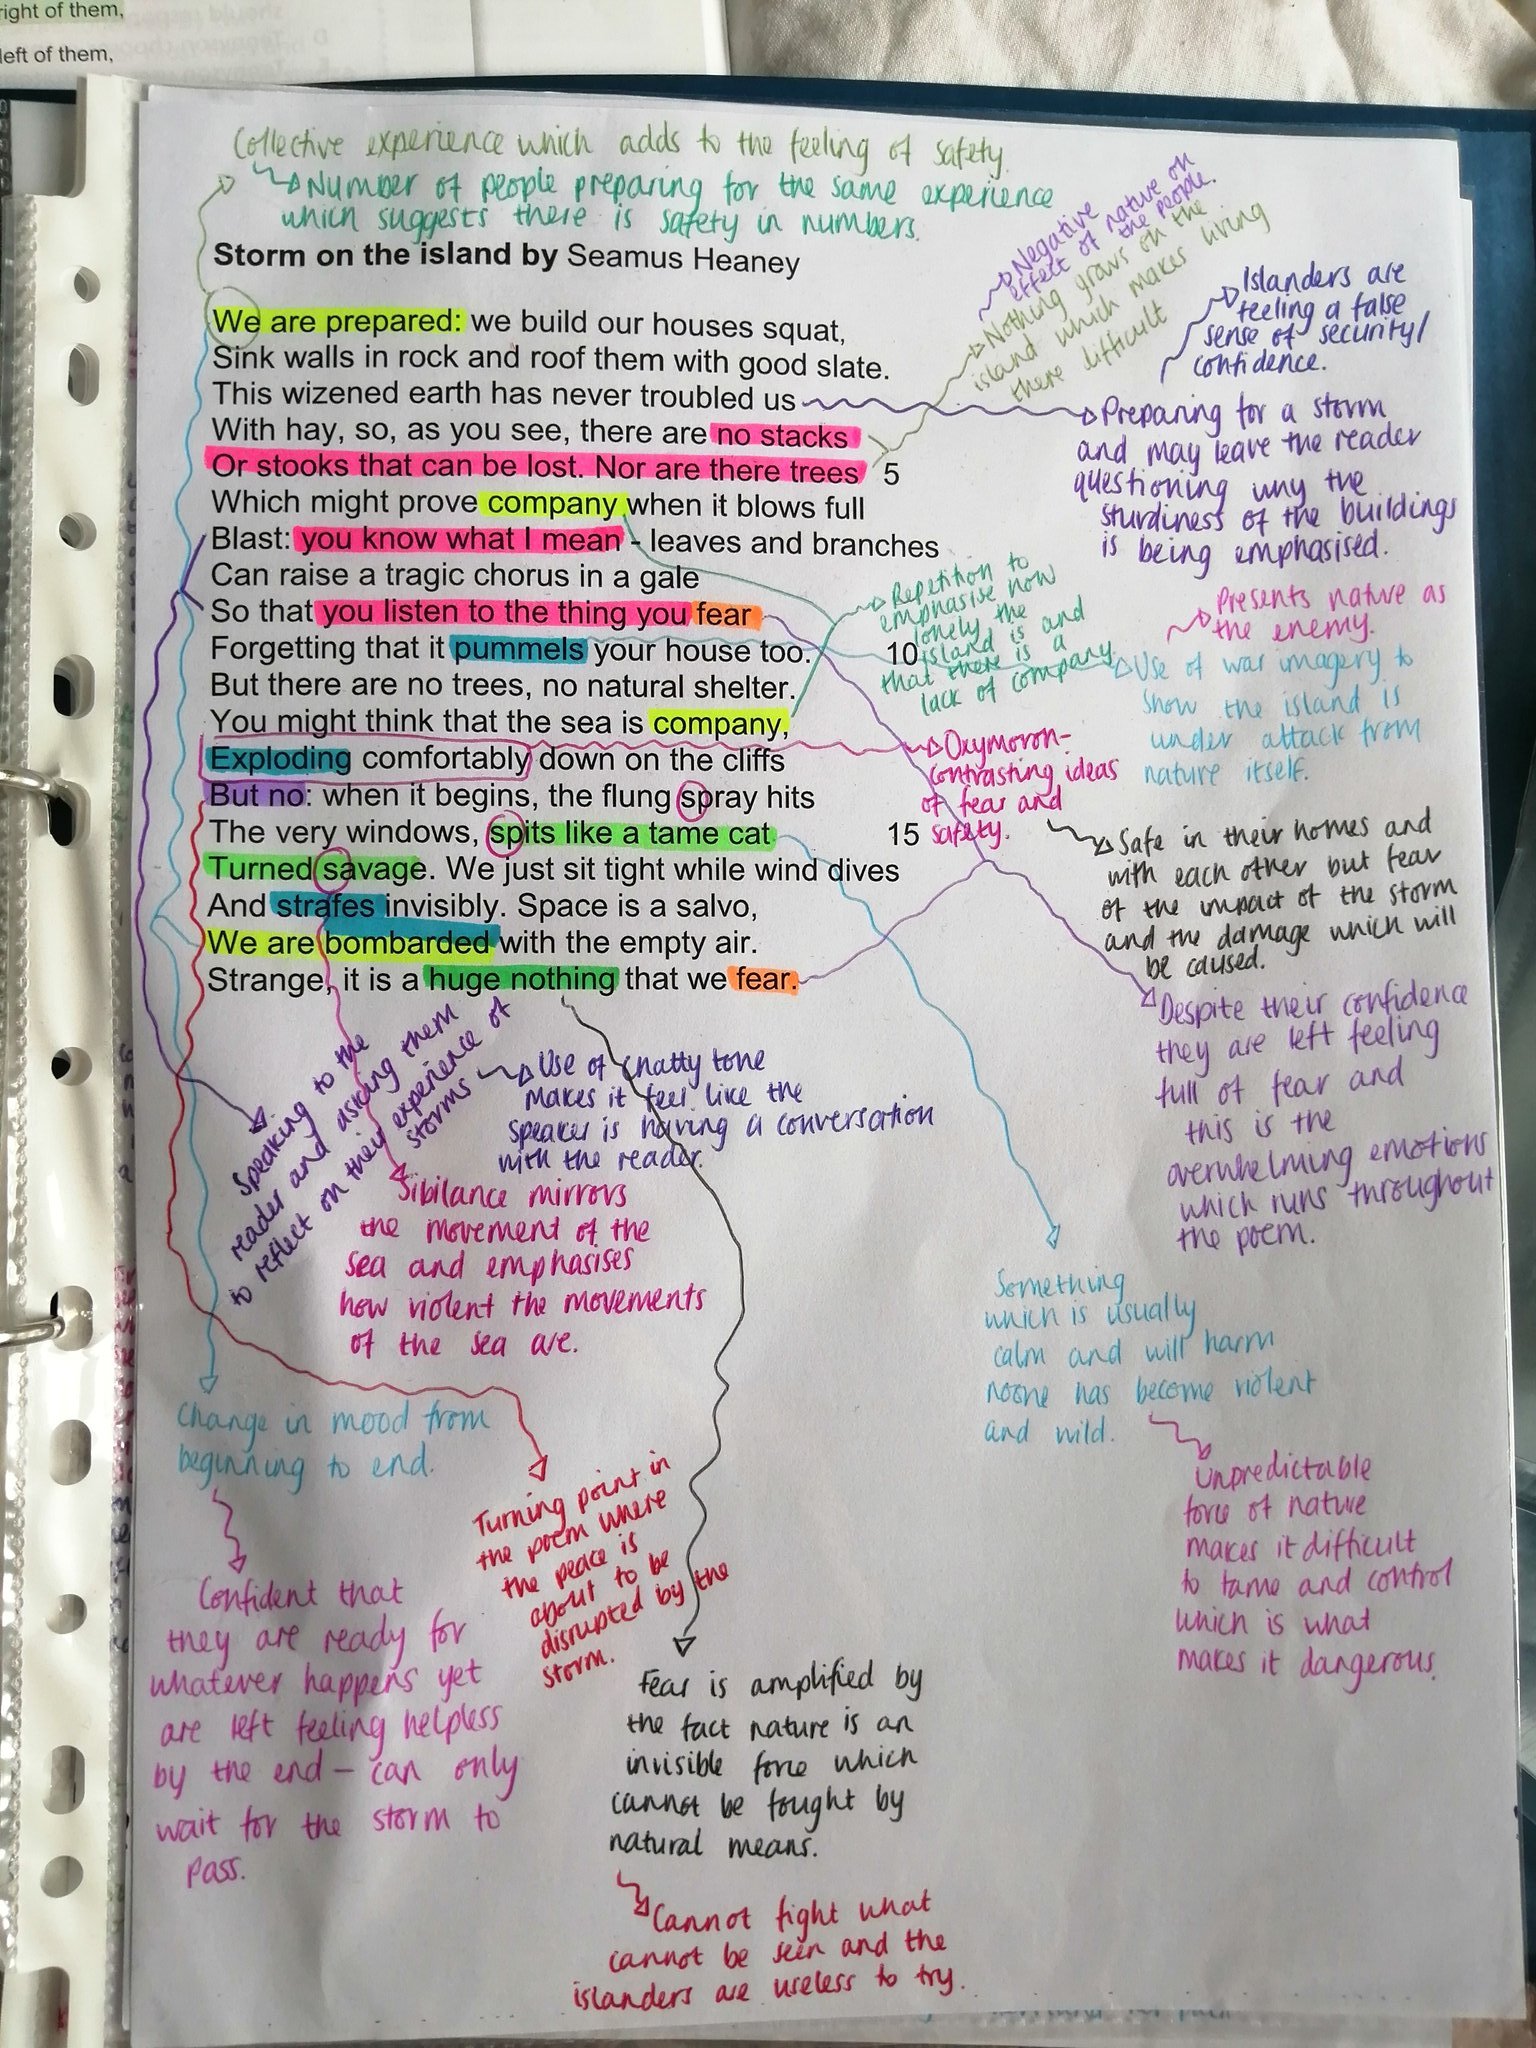 right of them,
left of them,
Collective experience which adds to the feeling of safety.
Number of people preparing for the same experience
which suggests there is safety in numbers.
Storm on the island by Seamus Heaney
We are prepared: we build our houses squat,
Sink walls in rock and roof them with good slate.
This wizened earth has never troubled us
With hay, so, as you see, there are no stacks
Or stooks that can be lost. Nor are there trees 5
Which might prove company when it blows full
Blast: you know what I mean - leaves and branches
Can raise a tragic chorus in a gale
So that you listen to the thing you fear
Forgetting that it pummels your house too. 10
But there are no trees, no natural shelter.
You might think that the sea is company,
Exploding comfortably down on the cliffs
But no: when it begins, the flung spray hits
The very windows, spits like a tame cat 15
Turned savage. We just sit tight while wind dives
And strafes invisibly. Space is a salvo,
We are bombarded with the empty air.
Strange, it is a huge nothing that we fear.
Negative
effect of nature on
the people.
Nothing grows on the
island which makes living
there difficult
Islanders are
feeling a false
sense of security/
confidence.
Preparing for a storm
and may leave the reader
questioning why the
sturdiness of the buildings
is being emphasised.
Repetition to
emphasise how
lonely the
island is and
that there is a
lack of company.
Presents nature as
the enemy.
Use of war imagery to
show the island is
under attack from
nature itself.
Oxymoron-
contrasting ideas
of fear and
safety.
Safe in their homes and
with each other but fear
of the impact of the storm
and the damage which will
be caused.
Despite their confidence
they are left feeling
full of fear and
this is the
overwhelming emotions
which runs throughout
the poem.
Speaking to the
reader and asking them
to reflect on their experience of
storms
Use of chatty tone
makes it feel like the
speaker is having a conversation
with the reader.
Sibilance mirrors
the movement of the
sea and emphasises
how violent the movements
of the sea are.
Something
which is usually
calm and will harm
noone has become violent
and wild.
Unpredictable
force of nature
makes it difficult
to tame and control
which is what
makes it dangerous.
Change in mood from
beginning to end.
Confident that
they are ready for
whatever happens yet
are left feeling helpless
by the end - can only
wait for the storm to
pass.
Turning point in
the poem where
the peace is
about to be
disrupted by the
storm.
Fear is amplified by
the fact nature is an
invisible force which
cannot be fought by
natural means.
Cannot fight what
cannot be seen and the
islanders are useless to try.